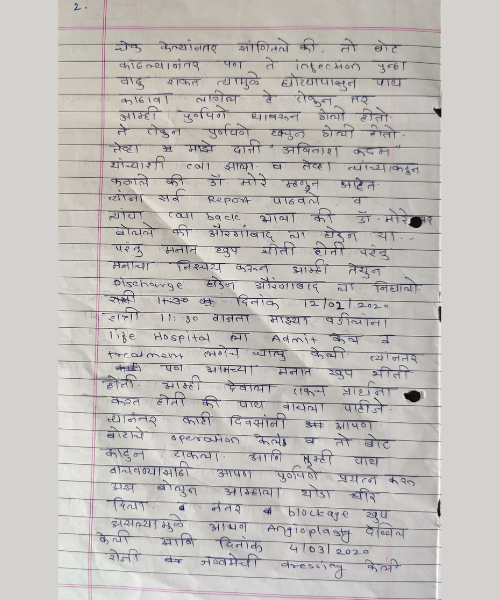 2.
चेक केल्यानंतर सांगितले की, तो बोट
काढल्यानंतर पण ते infection पुन्हा
वाढु शकत त्यामुळे घोट्यापासुन पाय
काढावा लागेल हे ऐकुन तर
आम्ही पुर्णपणे घाबरून गेलो होतो.
ते ऐकुन पुर्णपणे खचुन गेलो होतो.
तेव्हा माझे दाजी "अविनाश कदम"
यांच्याशी व तेव्हा त्यांच्याकडुन
कळाले की डॉ. मोरे म्हणुन आहेत
त्यांना सर्व Report पाठवले व
त्यांचा back आला की डॉ. मोरे सर
बोलले की औरंगाबाद ला घेऊन या.
परंतु मनात खुप भीती होती परंतु
मनाचा निश्चय करून आम्ही तेथुन
Discharge घेऊन औरंगाबाद ला निघालो.
दिनांक 12/02/2020
रात्री 11:30 वाजता माझ्या वडीलांना
life Hospital ला Admit केले व
treatment लगेच चालु केली त्यानंतर
पण आमच्या मनात खुप भीती
होती. आम्ही देवाला एकच प्रार्थना
करत होतो की पाय वाचला पाहीजे
त्यानंतर काही दिवसांनी आपण
बोटाचे operation केले व तो बोट
काढुन टाकला. आणि तुम्ही पाय
वाचवण्यासाठी आपण पुर्णपणे प्रयत्न करू
असे बोलुन आम्हाला थोडा धीर
दिला. व नंतर blockage खुप
असल्यामुळे आपण Angioplasty देखिल
केली आणि दिनांक 4/03/2020
रोजी जखमेची dressing केली